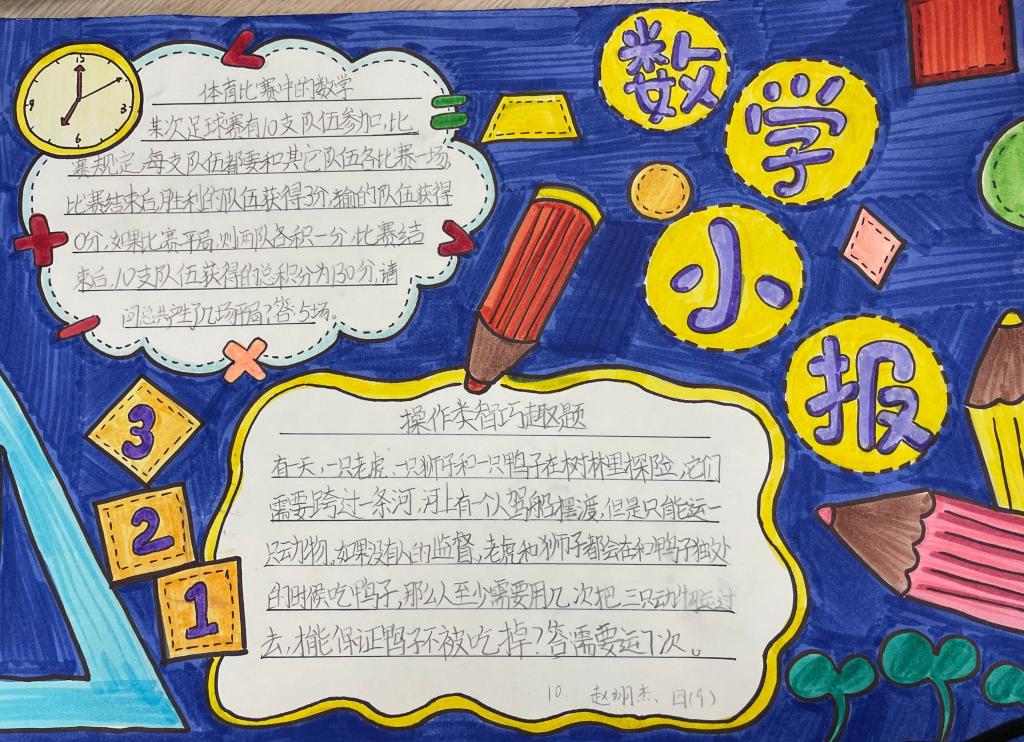 数学小报
12
3
6
9
体育比赛中的数学
某次足球赛有10支队伍参加,比
赛规定,每支队伍都要和其它队伍各比赛一场,
比赛结束后,胜利的队伍获得3分,输的队伍获得
0分,如果比赛平局,则两队各积一分,比赛结
束后,10支队伍获得的总积分为130分,请
问总共产生了几场平局?答:5场。
3
2
1
操作类智巧趣题
有一天,一只老虎,一只狮子和一只鸭子在树林里探险,它们
需要跨过一条河,河上有一个人驾船摆渡,但是只能运一
只动物。如果没有人的监督,老虎和狮子都会在和鸭子独处
的时候吃鸭子,那么人至少需要用几次把三只动物运过
去,才能保证鸭子不被吃掉?答:需要运7次。
10. 赵 杰、四(9)